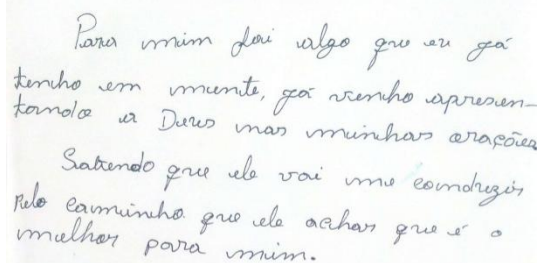 Para mim foi algo que eu já
tenho em mente, já venho apresen-
tando a Deus nas minhas orações
Sabendo que ele vai me conduzir
pelo caminho que ele achar que é o
melhor para mim.